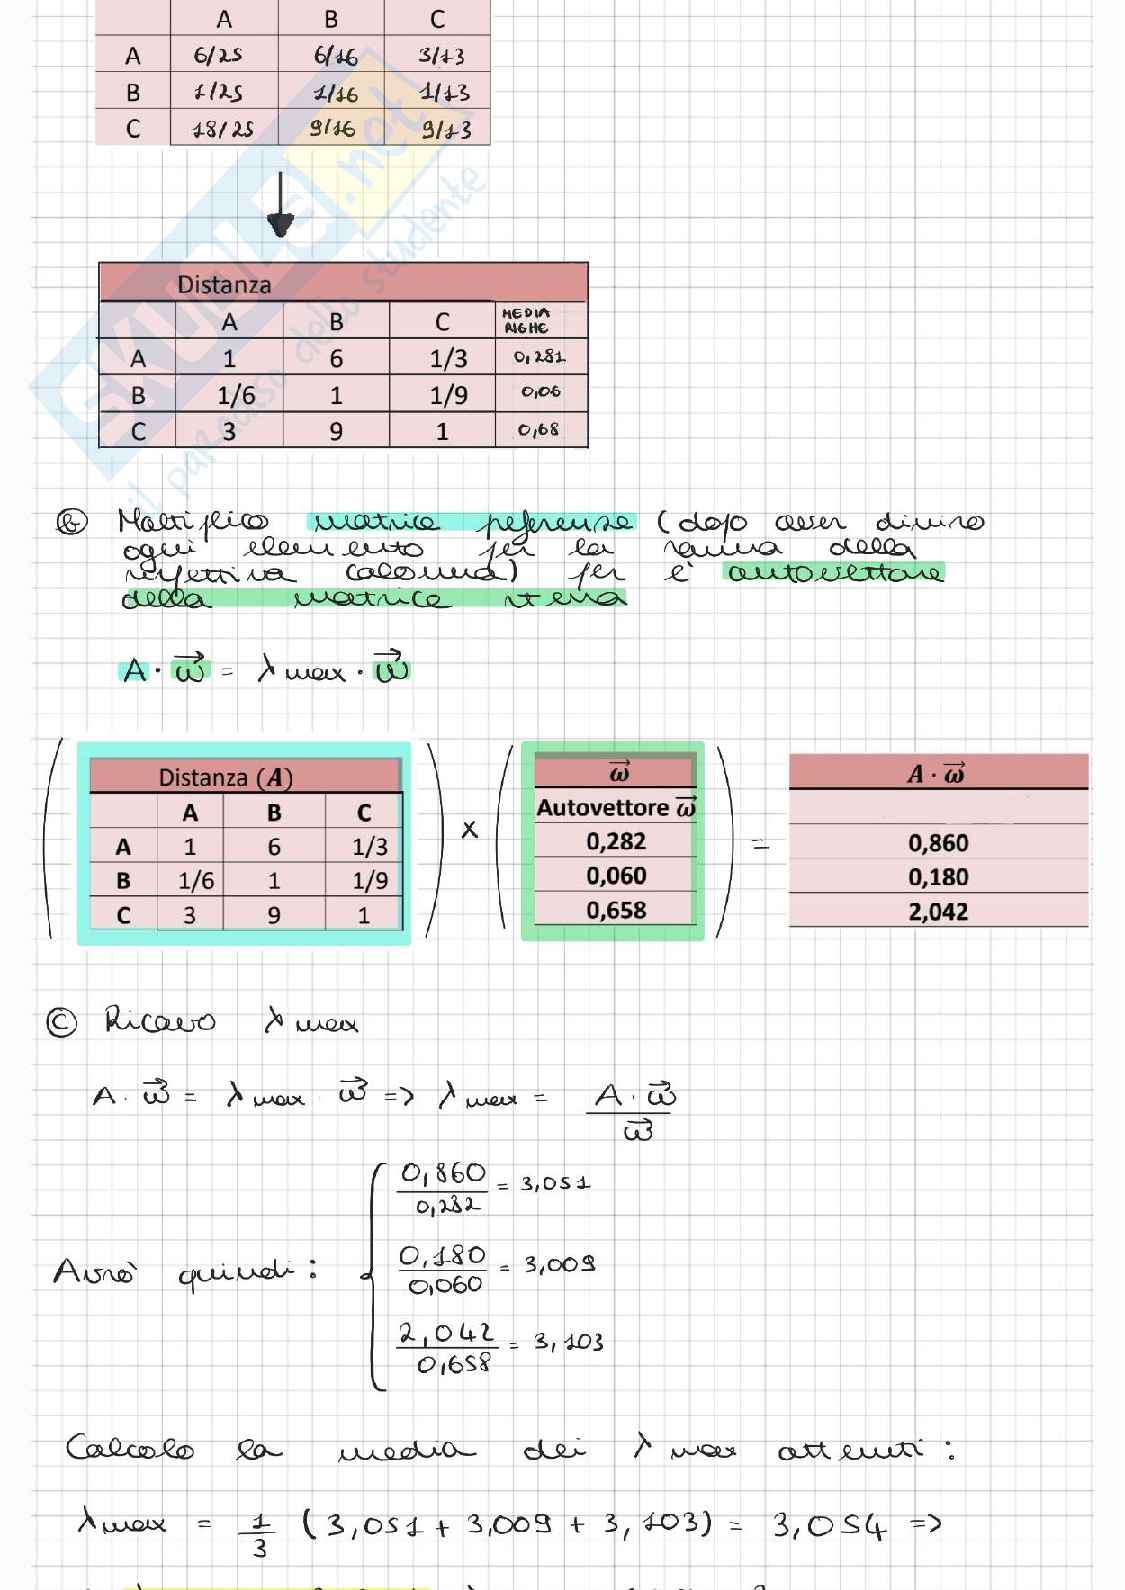 A B C
A 6/25 6/16 3/13
B 1/25 1/16 1/13
C 18/25 9/16 9/13
SKUOLA.net
il paradiso dello studente
Distanza
A B C MEDIA RIGHE
A 1 6 1/3 0,281
B 1/6 1 1/9 0,06
C 3 9 1 0,68
b Moltiplico matrice preferenze (dopo aver diviso
ogni elemento per la somma della
rispettiva colonna) per è autovettore
della matrice stessa
A · ω = λ max · ω
Distanza (A)
A B C
A 1 6 1/3
B 1/6 1 1/9
C 3 9 1
×
ω
Autovettore ω
0,282
0,060
0,658
=
A · ω
0,860
0,180
2,042
c Ricavo λ max
A · ω = λ max ω => λ max = A · ω / ω
Avrò quindi:
0,860 / 0,282 = 3,051
0,180 / 0,060 = 3,009
2,042 / 0,658 = 3,103
Calcolo la media dei λ max ottenuti:
λ max = 1/3 (3,051 + 3,009 + 3,103) = 3,054 =>